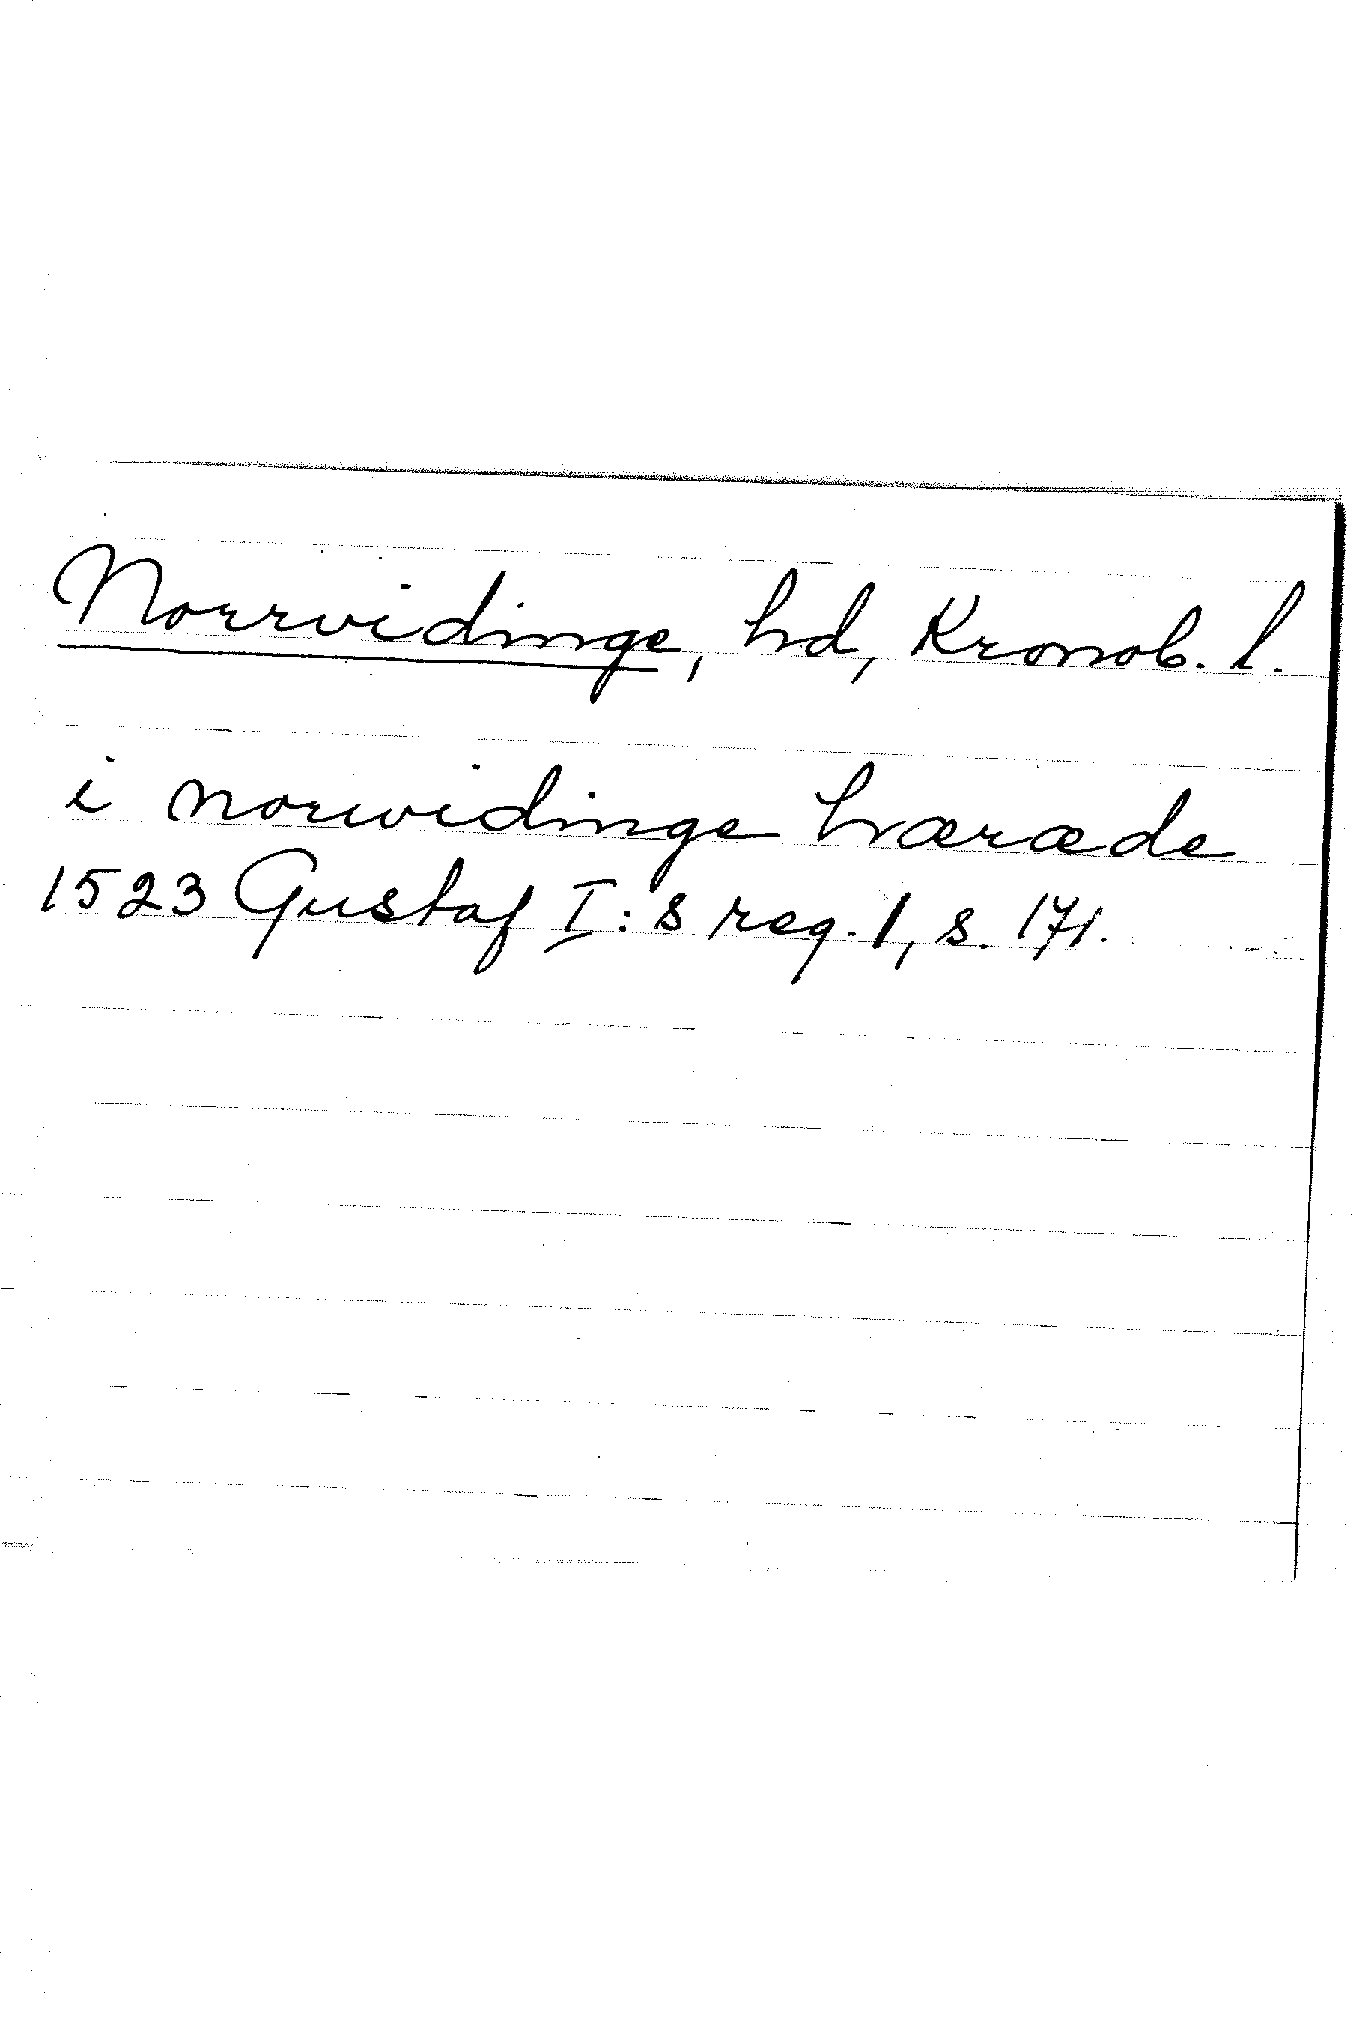 Norrvidinge, hd, Kronob. l.
i norwidinge hæræde
1523 Gustaf I:s reg. 1, s. 171.